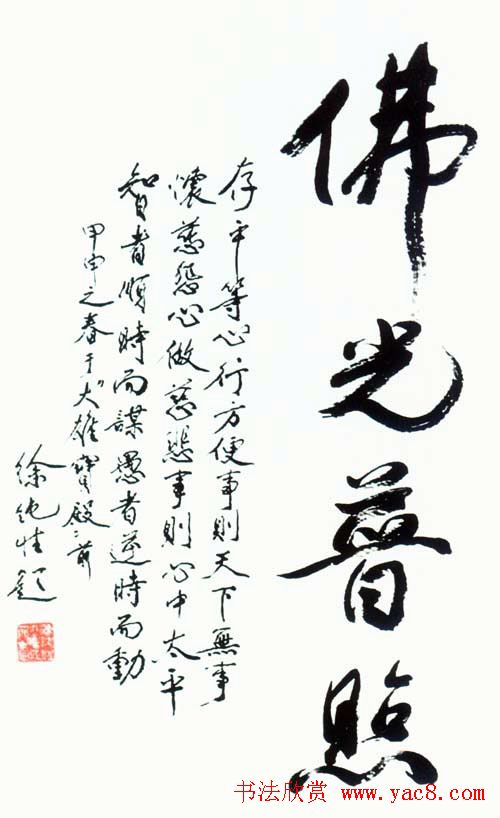 佛光普照
存平等心行方便事則天下無事
懷慈悲心做慈悲事則心中太平
智者順時而謀愚者逆時而動
甲申之春于大雄寶殿之前
徐純性題
书法欣赏 www.yac8.com